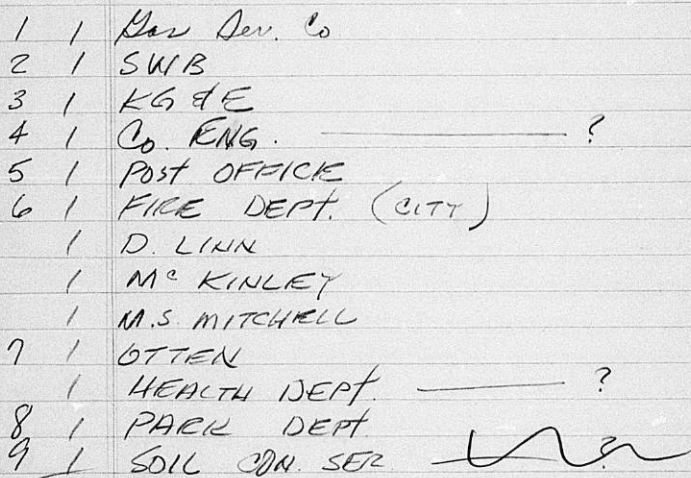 1 1 Gas Ser. Co
2 1 SWB
3 1 KG & E
4 1 Co. ENG. ?
5 1 POST OFFICE
6 1 FIRE DEPT. (CITY)
1 D. LINN
1 Mc KINLEY
1 M.S. MITCHELL
7 1 OTTEN
1 HEALTH DEPT. ?
8 1 PARK DEPT
9 1 SOIL CON. SER. ?